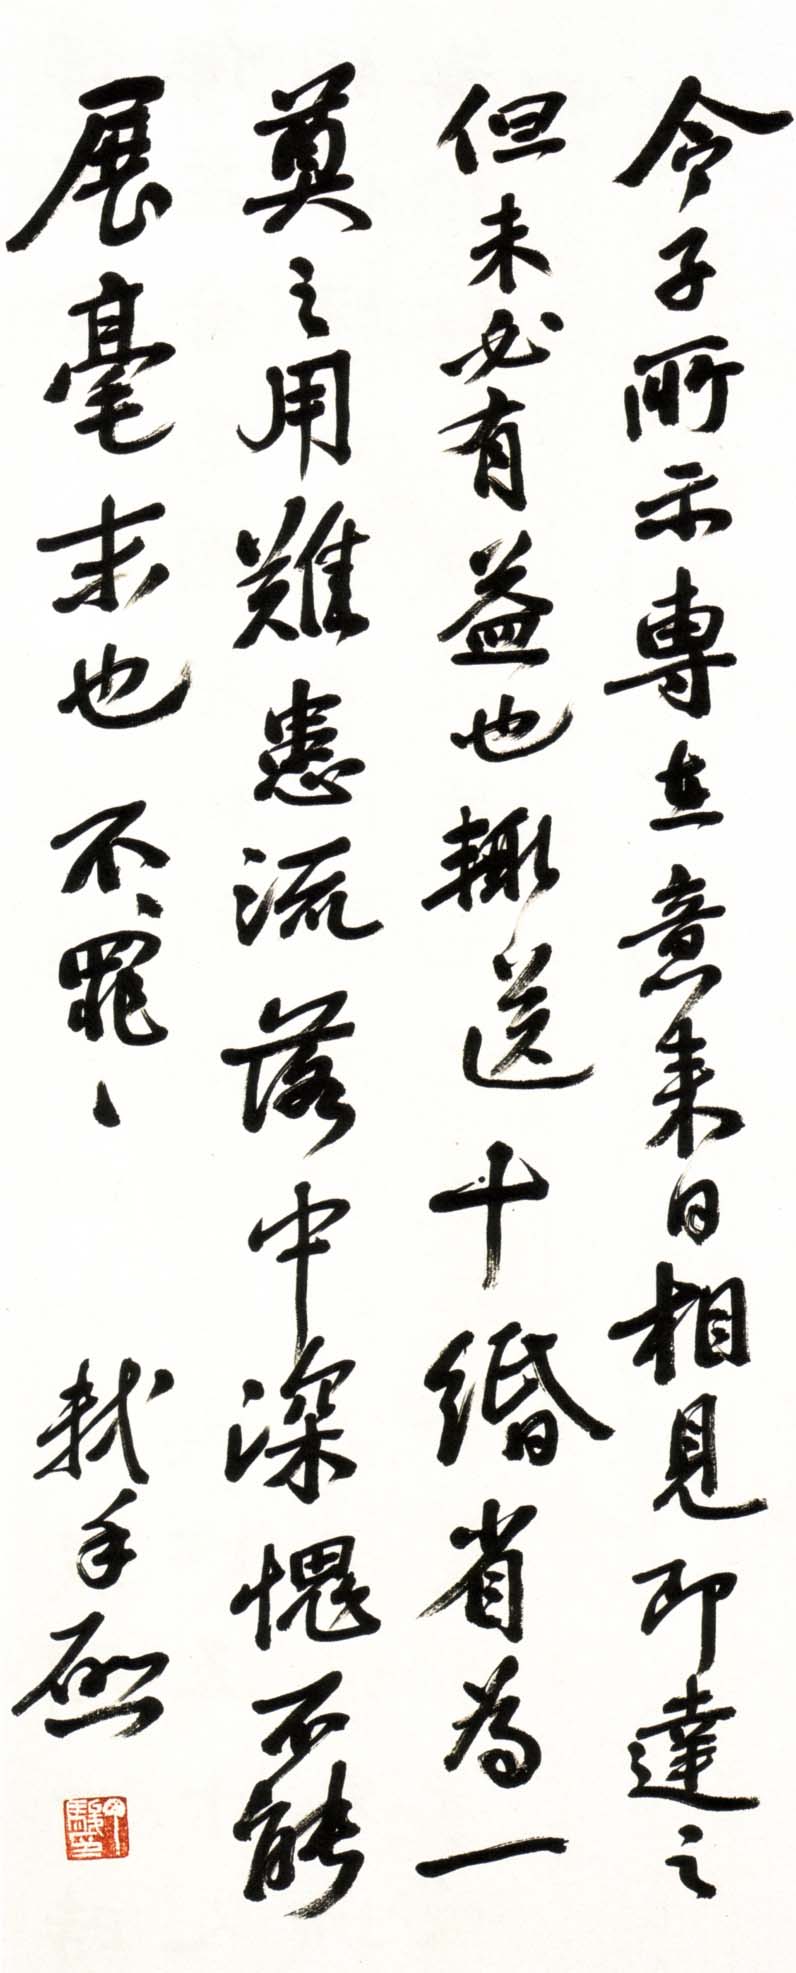 令子所示專在意来日相見即達之
但未必有益也輙送十緡省為一
奠之用難患流落中深愧不能
展毫末也不、罪、 軾手啟